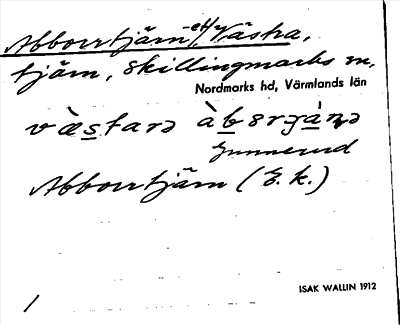 Abborrtjärn -et, Västra,
tjärn, Skillingmarks sn,
Nordmarks hd, Värmlands län
Gunnerud
Abborrtjärn (E. k.)
ISAK WALLIN 1912
/